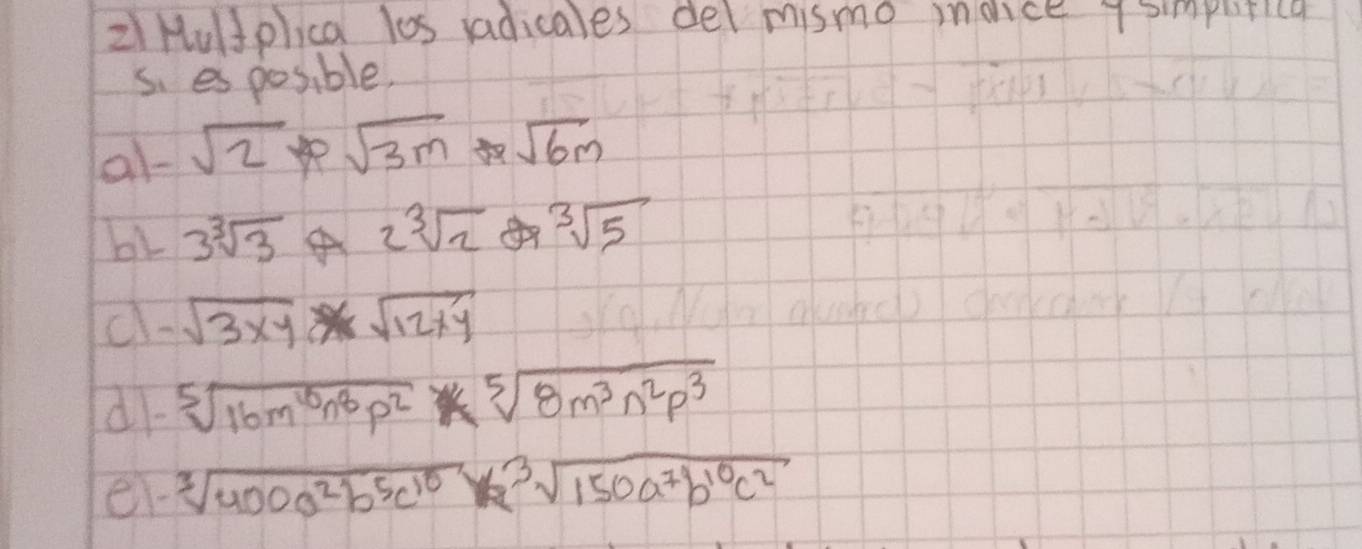 2) Multplica los radicales del mismo indice y simplifica
si es posible.
a)- √2 * √3m * √6m
b)- 3∛3 * 2∛2 * ∛5
c)- √3xy * √12xy
d)- ⁵√16m¹⁰n⁸p² * ⁵√8m³n²p³
e)- ∛400a²b⁵c¹⁰ * ∛150a⁷b¹⁰c²